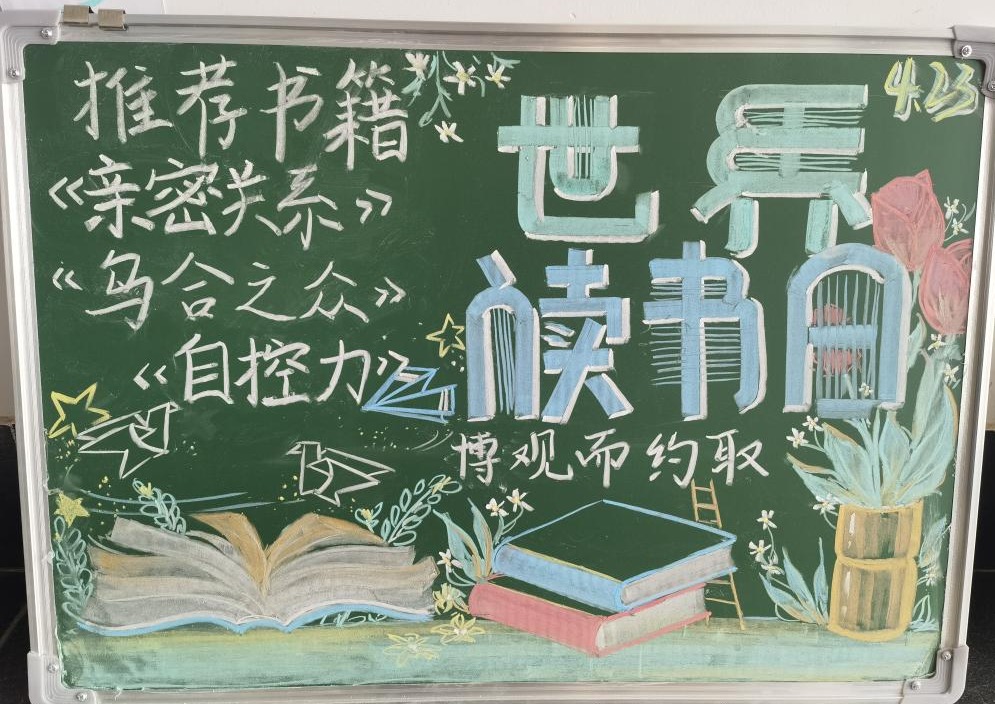 推荐书籍
《亲密关系》
《乌合之众》
《自控力》
4.23
世界
读书日
博观而约取